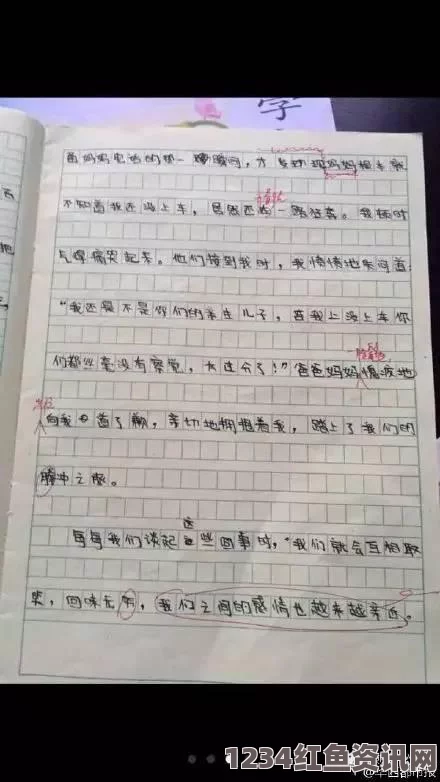 学
面妈妈电话的那一瞬间，才发现现妈妈根本就
不知道我还没上车，居然还
一路狂奔。我顿时
气得痛哭起来。他们接到我时，我愤愤地质问道：
“我还是不是你们的亲生儿子，连我上没上车你
们都丝毫没有察觉，太过分了！”爸爸妈妈愧疚地
向我道了歉，亲切地拥抱着我，踏上了我们的
腾冲之旅。
每每我们谈起这些囧事时，“我们就会互相取
笑，回味无穷，我们之间的感情也越来越亲近。
1234红鱼资讯网
@华西都市报